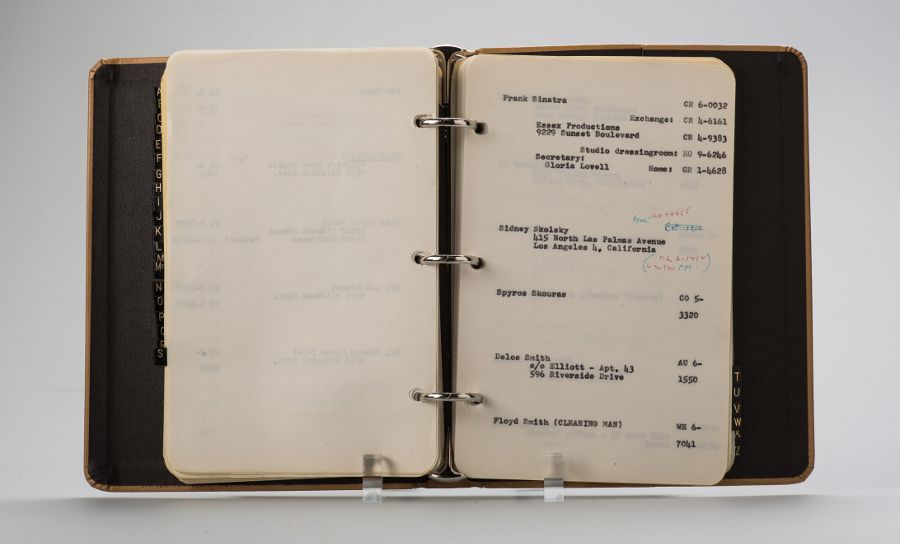 A
B
C
D
E
F
G
H
I
J
K
L
M
N
O
P
S
Frank Sinatra CR 6-0032
Exchange: CR 4-6161
Essex Productions
9229 Sunset Boulevard CR 4-9383
Studio dressingroom: HO 9-6246
Secretary:
Gloria Lovell Home: CR 1-4628
Sidney Skolsky
415 North Las Palmas Avenue
Los Angeles 4, California
PM
Spyros Skouras CO 5-
3320
Delos Smith AU 6-
c/o Elliott - Apt. 43
596 Riverside Drive 1550
Floyd Smith (CLEANING MAN) WE 6-
7041
T
U
V
W
Z